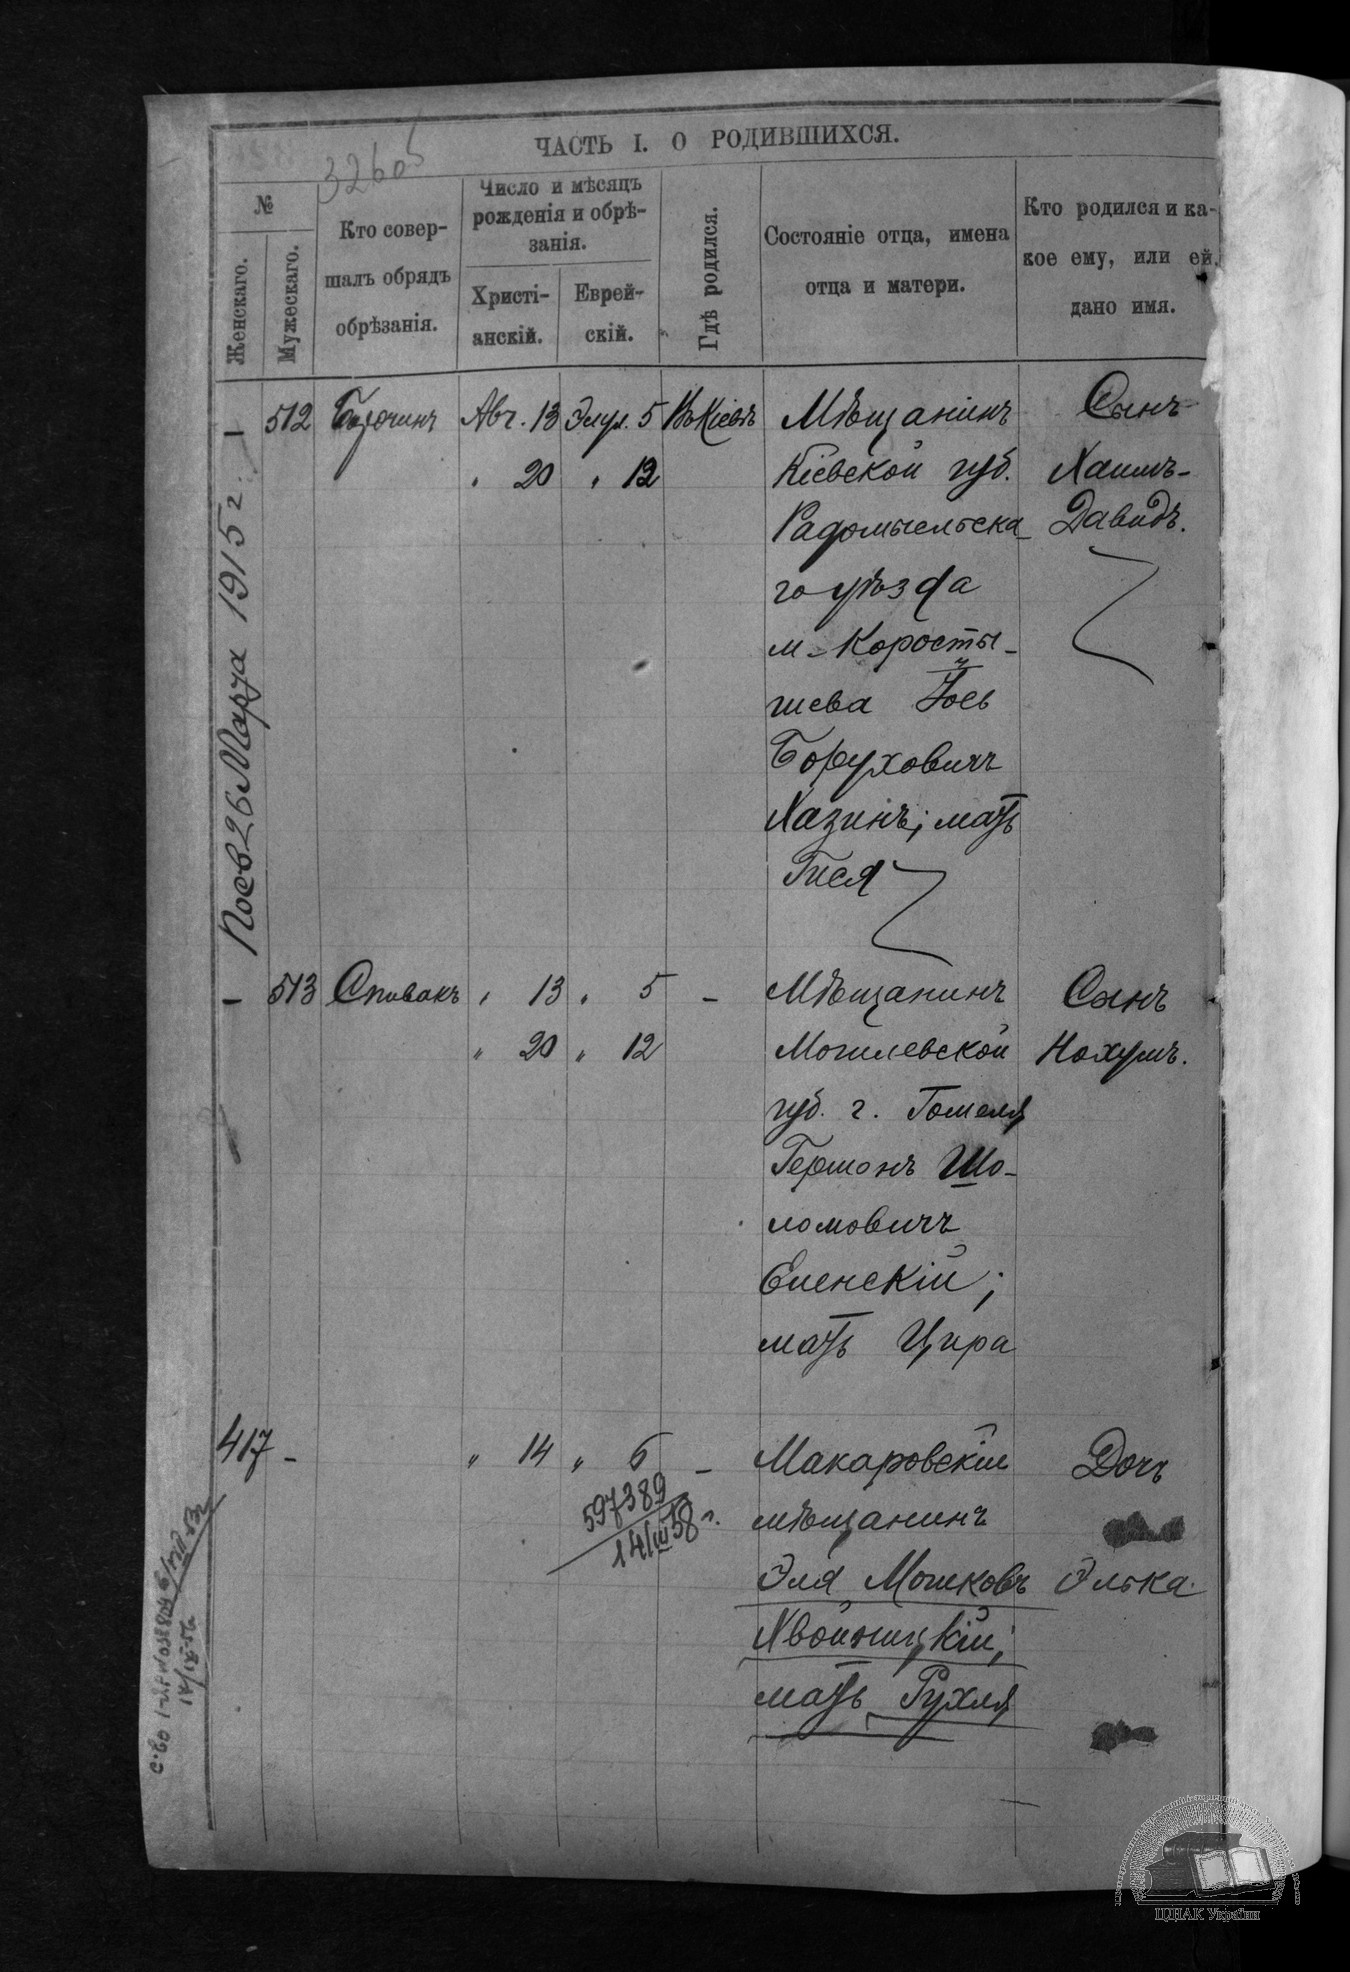 3260
ЧАСТЬ I. О РОДИВШИХСЯ.
№
Женскаго.
Мужескаго.
Кто совер-
шалъ обрядъ
обрѣзанія.
Число и мѣсяцъ
рожденія и обрѣ-
занія.
Христі-
анскій.
Еврей-
скій.
Гдѣ родился.
Состояніе отца, имена
отца и матери.
Кто родился и ка-
кое ему, или ей,
дано имя.
26 Марта 1915 г.
– 512 Авг. 13 Элул. 5 Въ Кіевѣ
" 20 " 12
Мѣщанинъ
Кіевской губ.
Радомысльска-
го уѣзда
м. Коросты-
шева Іось
Боруховичъ
Хазинъ; мать
Гися
Сынъ
Хаимъ-
Давидъ.
– 513 Спивакъ " 13 " 5 –
" 20 " 12
Мѣщанинъ
Могилевской
губ. г. Гомеля
Германъ Шо-
ломовичъ
Еленскій;
мать Цира
Сынъ
Нахумъ.
417 – " 14 " 6 –
597389
14/III 58 г.
Макаровскій
мѣщанинъ
Эля Мошковъ
Хвойницкій;
мать Рухля
Дочь
Элька.
ЦДІАК України